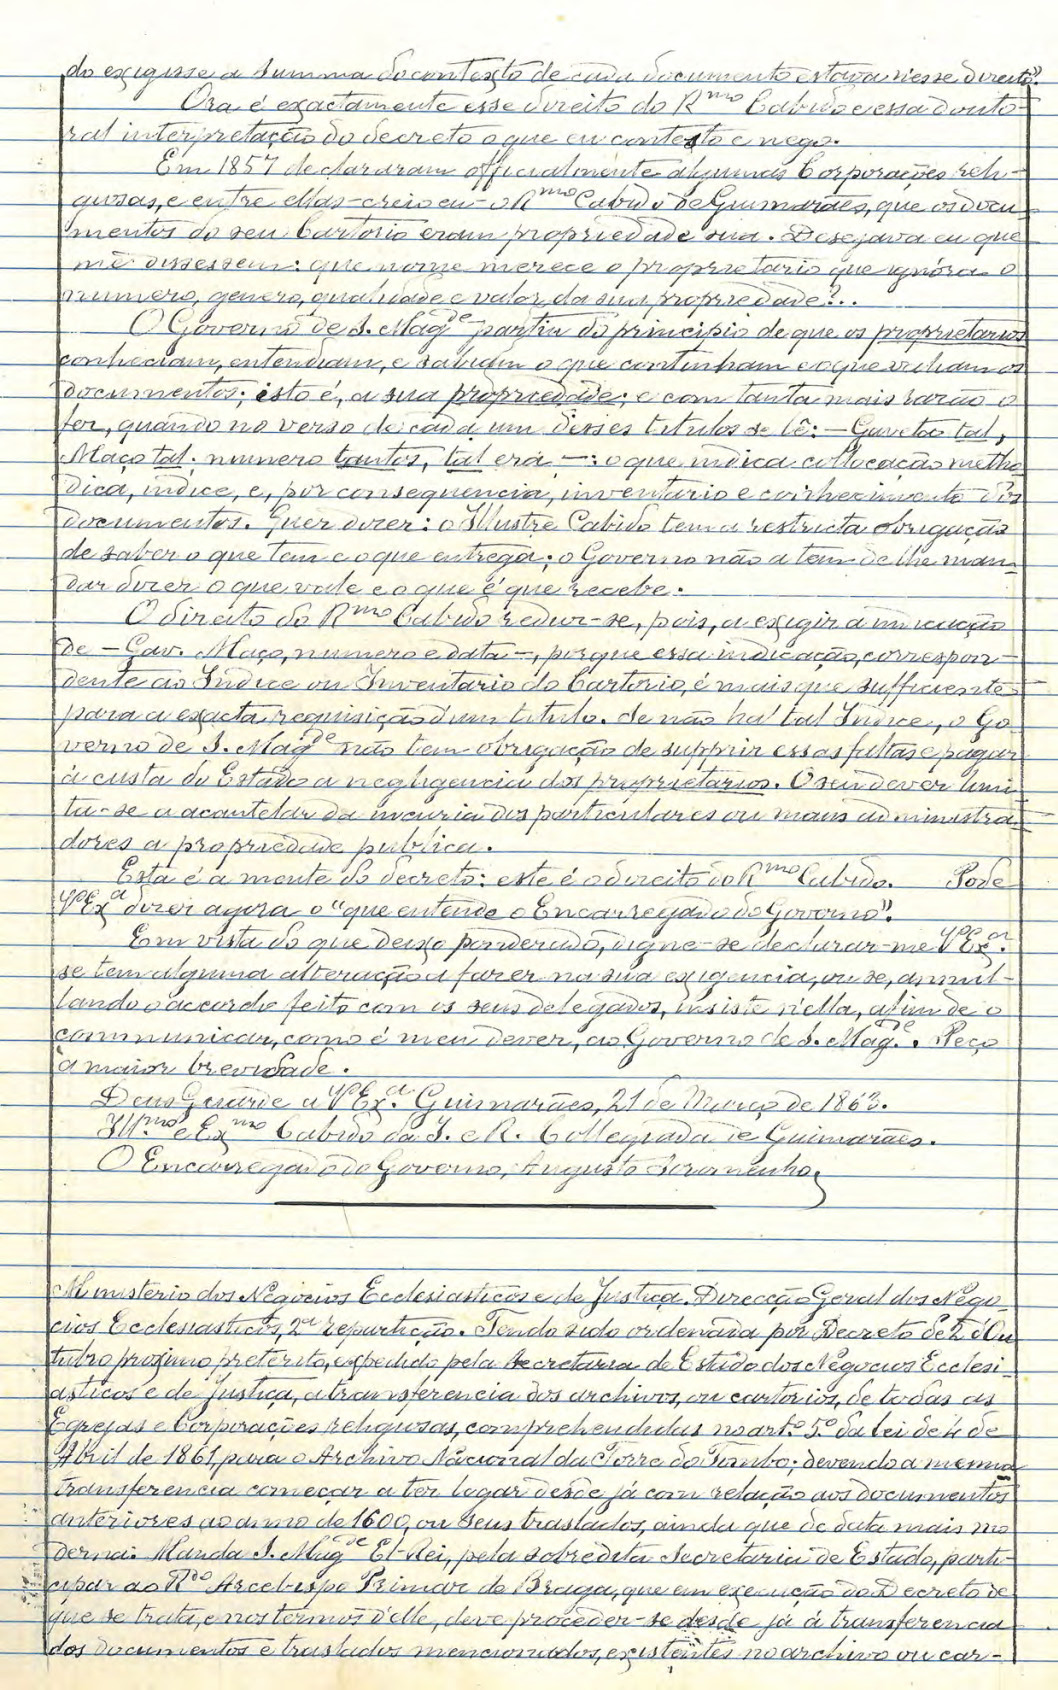 do exigisse a summa do contexto de cada documento estava n'esse direito".
Ora é exactamente esse direito do R.mo Cabido e essa douto-
ral interpretação do decreto o que eu contesto e nego.
Em 1857 declararam officialmente algumas Corporações reli-
giosas, e entre ellas - creio eu - o R.mo Cabido de Guimarães, que os docu-
mentos do seu Cartorio eram propriedade sua. Desejava eu que
me dissessem: que nome merece o proprietario que ignora o
numero, genero, qualidade e valor da sua propriedade?...
O Governo de S. Mag.de partiu do principio de que os proprietarios
conheciam, entendiam, e sabiam o que continham e o que valiam os
documentos; isto é, a sua propriedade; e com tanta mais rasão o
fez, quando no verso de cada um desses titulos se lê: - Gaveta tal,
Maço tal; numero tantos, tal era -: o que indica collocação metho-
dica, indice, e, por consequencia, inventario e conhecimento dos
documentos. Quer dizer: o Illustre Cabido tem a restricta obrigação
de saber o que tem e o que entrega; o Governo não a tem de lhe man-
dar dizer o que vale e o que é que recebe.
O direito do R.mo Cabido reduz-se, pois, a exigir a indicação
de - Gav. Maço, numero e data -, porque essa indicação, correspon-
dente ao Indice ou Inventario do Cartorio, é mais que sufficiente
para a exacta requisição d'um titulo. Se não ha tal Indice, o Go-
verno de S. Mag.de não tem obrigação de supprir essas faltas e pagar
á custa do Estado a negligencia dos proprietarios. O seu dever limi-
ta-se a acautelar da incuria dos particulares ou maus administra-
dores a propriedade publica.
Esta é a mente do decreto: este é o direito do R.mo Cabido. Pode
V. Ex.a dizer agora o "que entende o Encarregado do Governo".
Em vista do que deixo ponderado, digne-se declarar-me V. Ex.a
se tem alguma alteração a fazer na sua exigencia, ou se, annul-
lando o accordo feito com os seus delegados, insiste n'ella, afim de o
communicar, como é meu dever, ao Governo de S. Mag.de. Peço
a maior brevidade.
Deus Guarde a V. Ex.a Guimarães, 21 de Março de 1863.
Ill.mo e Ex.mo Cabido da I. e R. Collegiada de Guimarães.
O Encarregado do Governo, Augusto Soromenho.
Ministerio dos Negocios Ecclesiasticos e de Justiça. Direcção Geral dos Nego-
cios Ecclesiasticos, 2.a repartição. Tendo sido ordenada por Decreto de 2 d'Ou-
tubro proximo preterito, expedido pela Secretaria de Estado dos Negocios Ecclesi-
asticos e de Justiça, a transferencia dos archivos, ou cartorios, de todas as
Egrejas e Corporações religiosas, comprehendidas no art.o 5.o da lei de 4 de
Abril de 1861, para o Archivo Nacional da Torre do Tombo; devendo a mesma
transferencia começar a ter logar desde já com relação aos documentos
anteriores ao anno de 1600, ou seus traslados, ainda que de data mais mo-
derna: Manda S. Mag.de El-Rei, pela sobredita Secretaria de Estado, parti-
cipar ao R.do Arcebispo Primaz de Braga, que em execução do Decreto de
que se trata, e nos termos d'elle, deve proceder-se desde já á transferencia
dos documentos e traslados mencionados, existentes no archivo ou car-